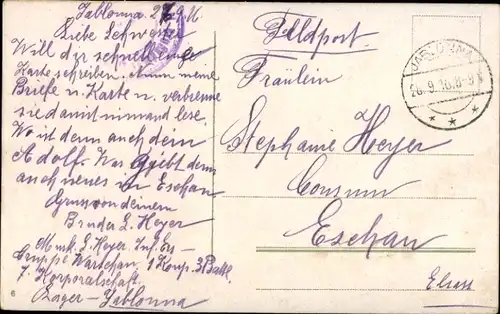 Jablonna 26.9.16
Liebe Schwester
Will dir schnell eine
Karte schreiben. Nimm meine
Briefe u. Karte u. verbrenne
sie damit nimand lese.
Wo ist denn auch dein
Adolf. Was giebt denn
auch neues in Eschau
Gruss von deinem
Bruder L. Heyer
Musk. L. Heyer Inf. Ers.
Truppe Warschau, 1 Komp. 3 Batl.
7. Korporalschaft.
Lager - Jablonna
Feldpost.
Fräulein
Stephanie Heyer
Consum
Eschau
Elsass
JABLONNA
26.9.16. 8-9V
6